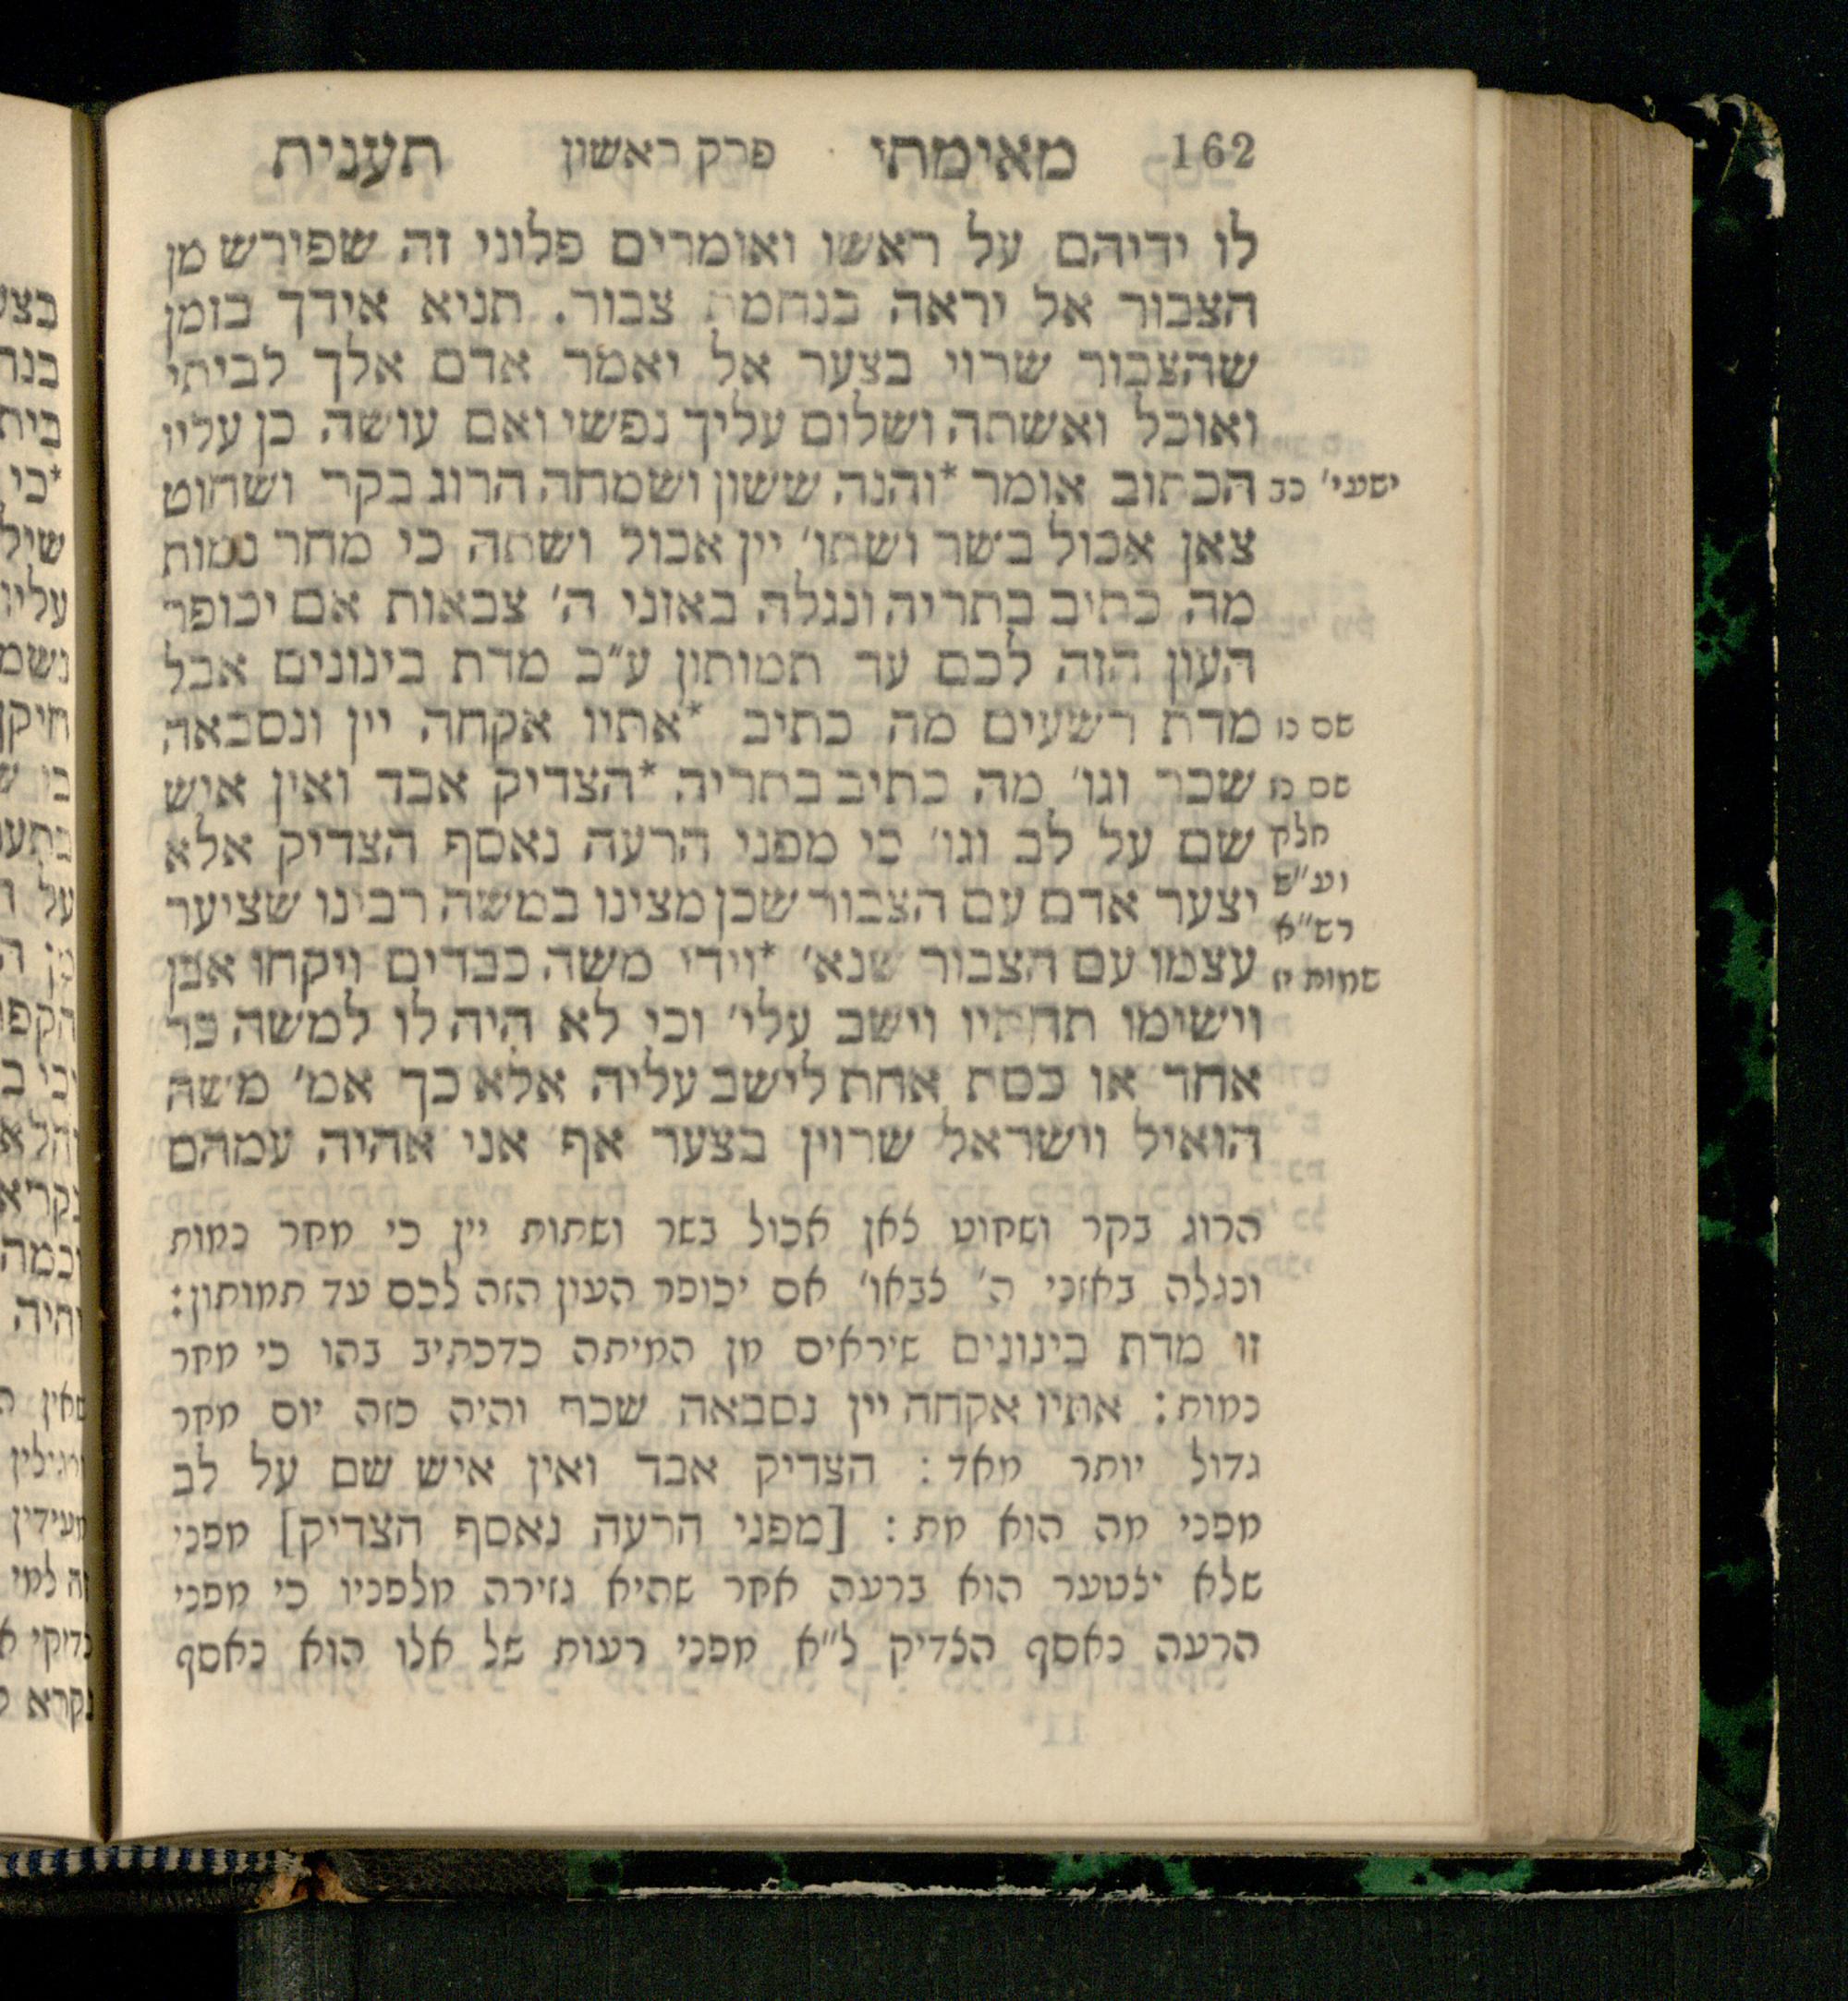 162 מאימתי פרק ראשון תענית
לו ידיהם על ראשו ואומרים פלוני זה שפירש מן
הצבור אל יראה בנחמת צבור. תניא אידך בזמן
שהצבור שרוי בצער אל יאמר אדם אלך לביתי
ואוכל ואשתה ושלום עליך נפשי ואם עושה כן עליו
ישעי׳ כב הכתוב אומר *והנה ששון ושמחה הרוג בקר ושחוט
צאן אכול בשר ושתו׳ יין אכול ושתה כי מחר נמות
מה כתיב בתריה ונגלה באזני ה׳ צבאות אם יכופר
העון הזה לכם עד תמותון ע״כ מדת בינונים אבל
שם נו מדת רשעים מה כתיב *אתיו אקחה יין ונסבאה
שם נז שכר וגו׳ מה כתיב בתריה *הצדיק אבד ואין איש
חלק שם על לב וגו׳ כי מפני הרעה נאסף הצדיק אלא
וע״ש יצער אדם עם הצבור שכן מצינו במשה רבינו שציער
רש״א
שמות יז עצמו עם הצבור שנא׳ *וידי משה כבדים ויקחו אבן
וישימו תחתיו וישב עלי׳ וכי לא היה לו למשה כר
אחד או כסת אחת לישב עליה אלא כך אמ׳ משה
הואיל וישראל שרוין בצער אף אני אהיה עמהם
הרוג בקר ושחוט צאן אכול בשר ושתות יין כי מחר נמות
ונגלה באזני ה׳ צבאו׳ אם יכופר העון הזה לכם עד תמותון:
זו מדת בינונים שיראים מן המיתה כדכתיב בהו כי מחר
נמות: אתיו אקחה יין נסבאה שכר והיה כזה יום מחר
גדול יותר מאד: הצדיק אבד ואין איש שם על לב
מפני מה הוא מת: [מפני הרעה נאסף הצדיק] מפני
שלא יצטער הוא ברעה אחר שתיא גזירה מלפניו כי מפני
הרעה נאסף הצדיק ל״א מפני רעות של אלו הוא נאסף